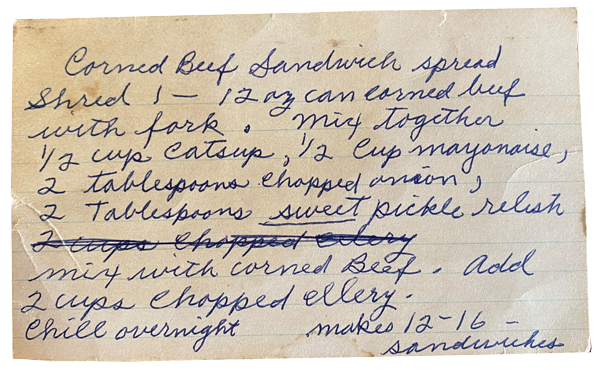 Corned Beef Sandwich spread
Shred 1 - 12 oz can corned beef
with fork. Mix together
1/2 cup catsup, 1/2 cup mayonaise,
2 tablespoons chopped onion,
2 Tablespoons sweet pickle relish
2 cups chopped cllery
mix with corned Beef. Add
2 cups chopped cllery.
Chill overnight makes 12-16 -
sandwiches